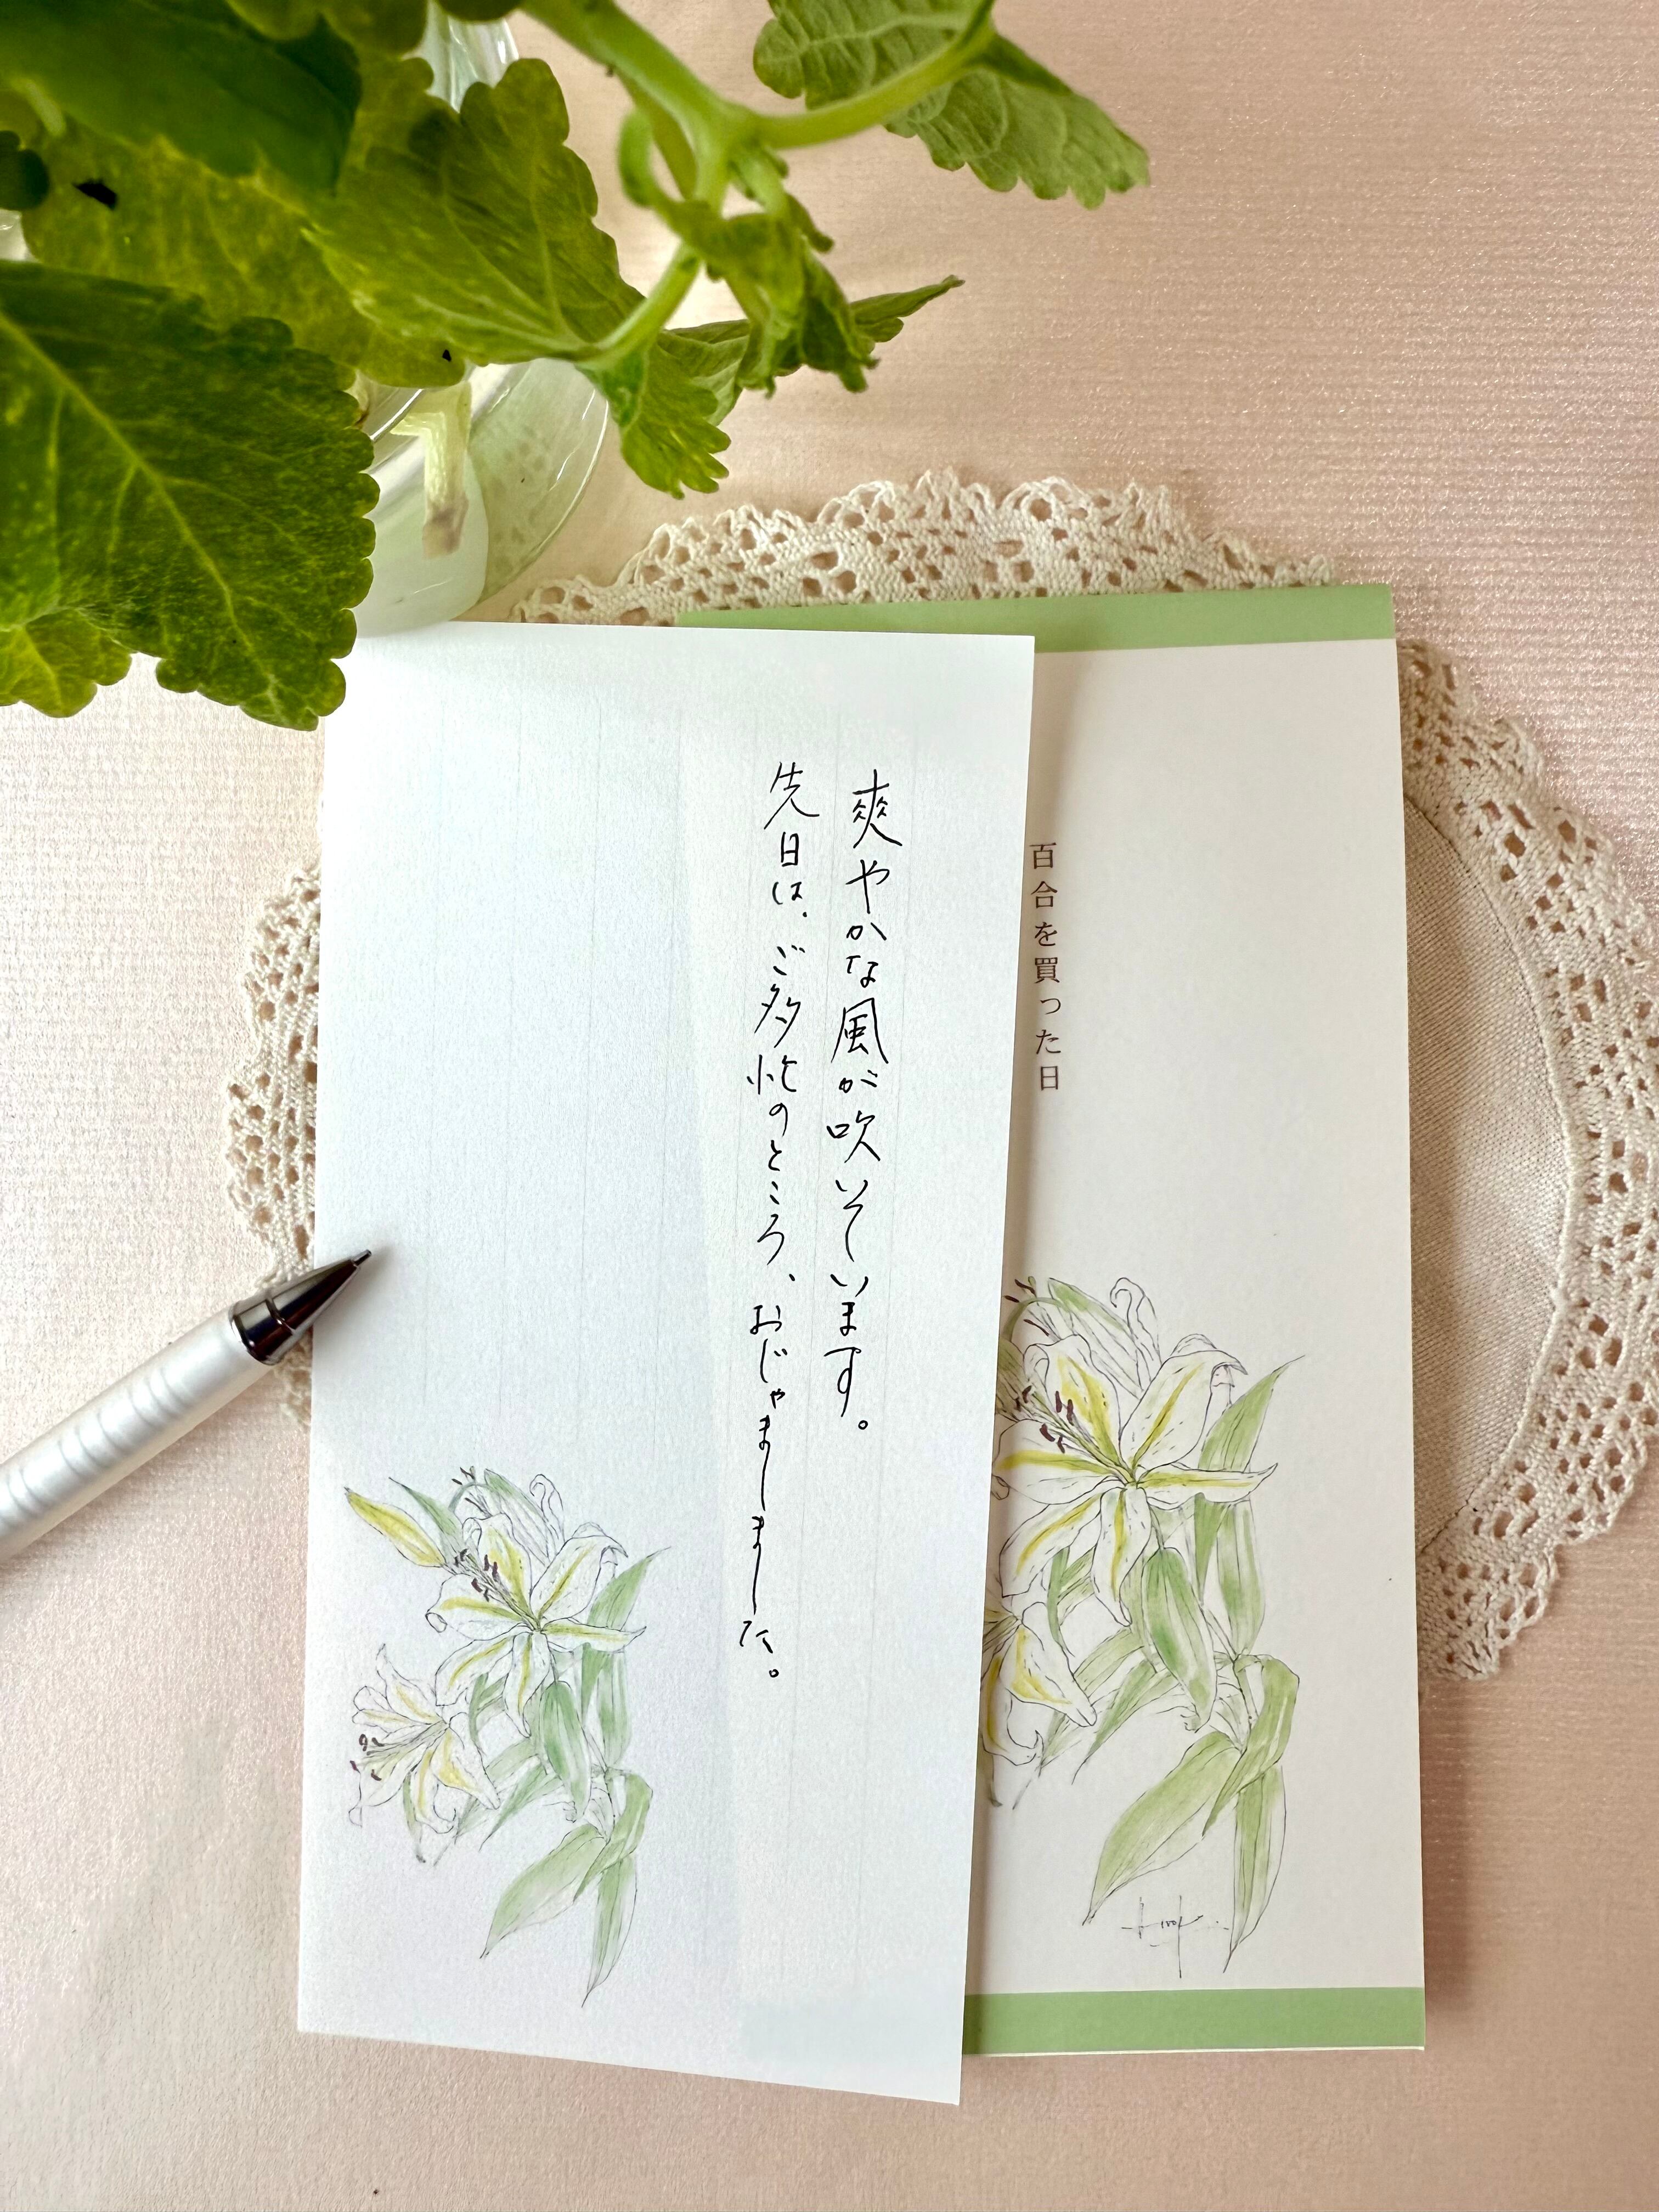 爽やかな風が吹いています。
先日は、ご多忙のところ、おじゃましました。
百合を買った日